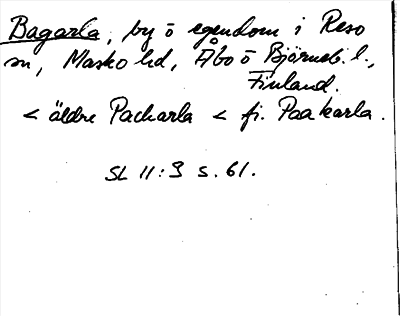 Bagarla, by o egendom i Reso
sn, Masko hd, Åbo o Björneb. l.,
Finland.
< äldre Pacharla < fi. Paakarla.
SL 11:3 s. 61.